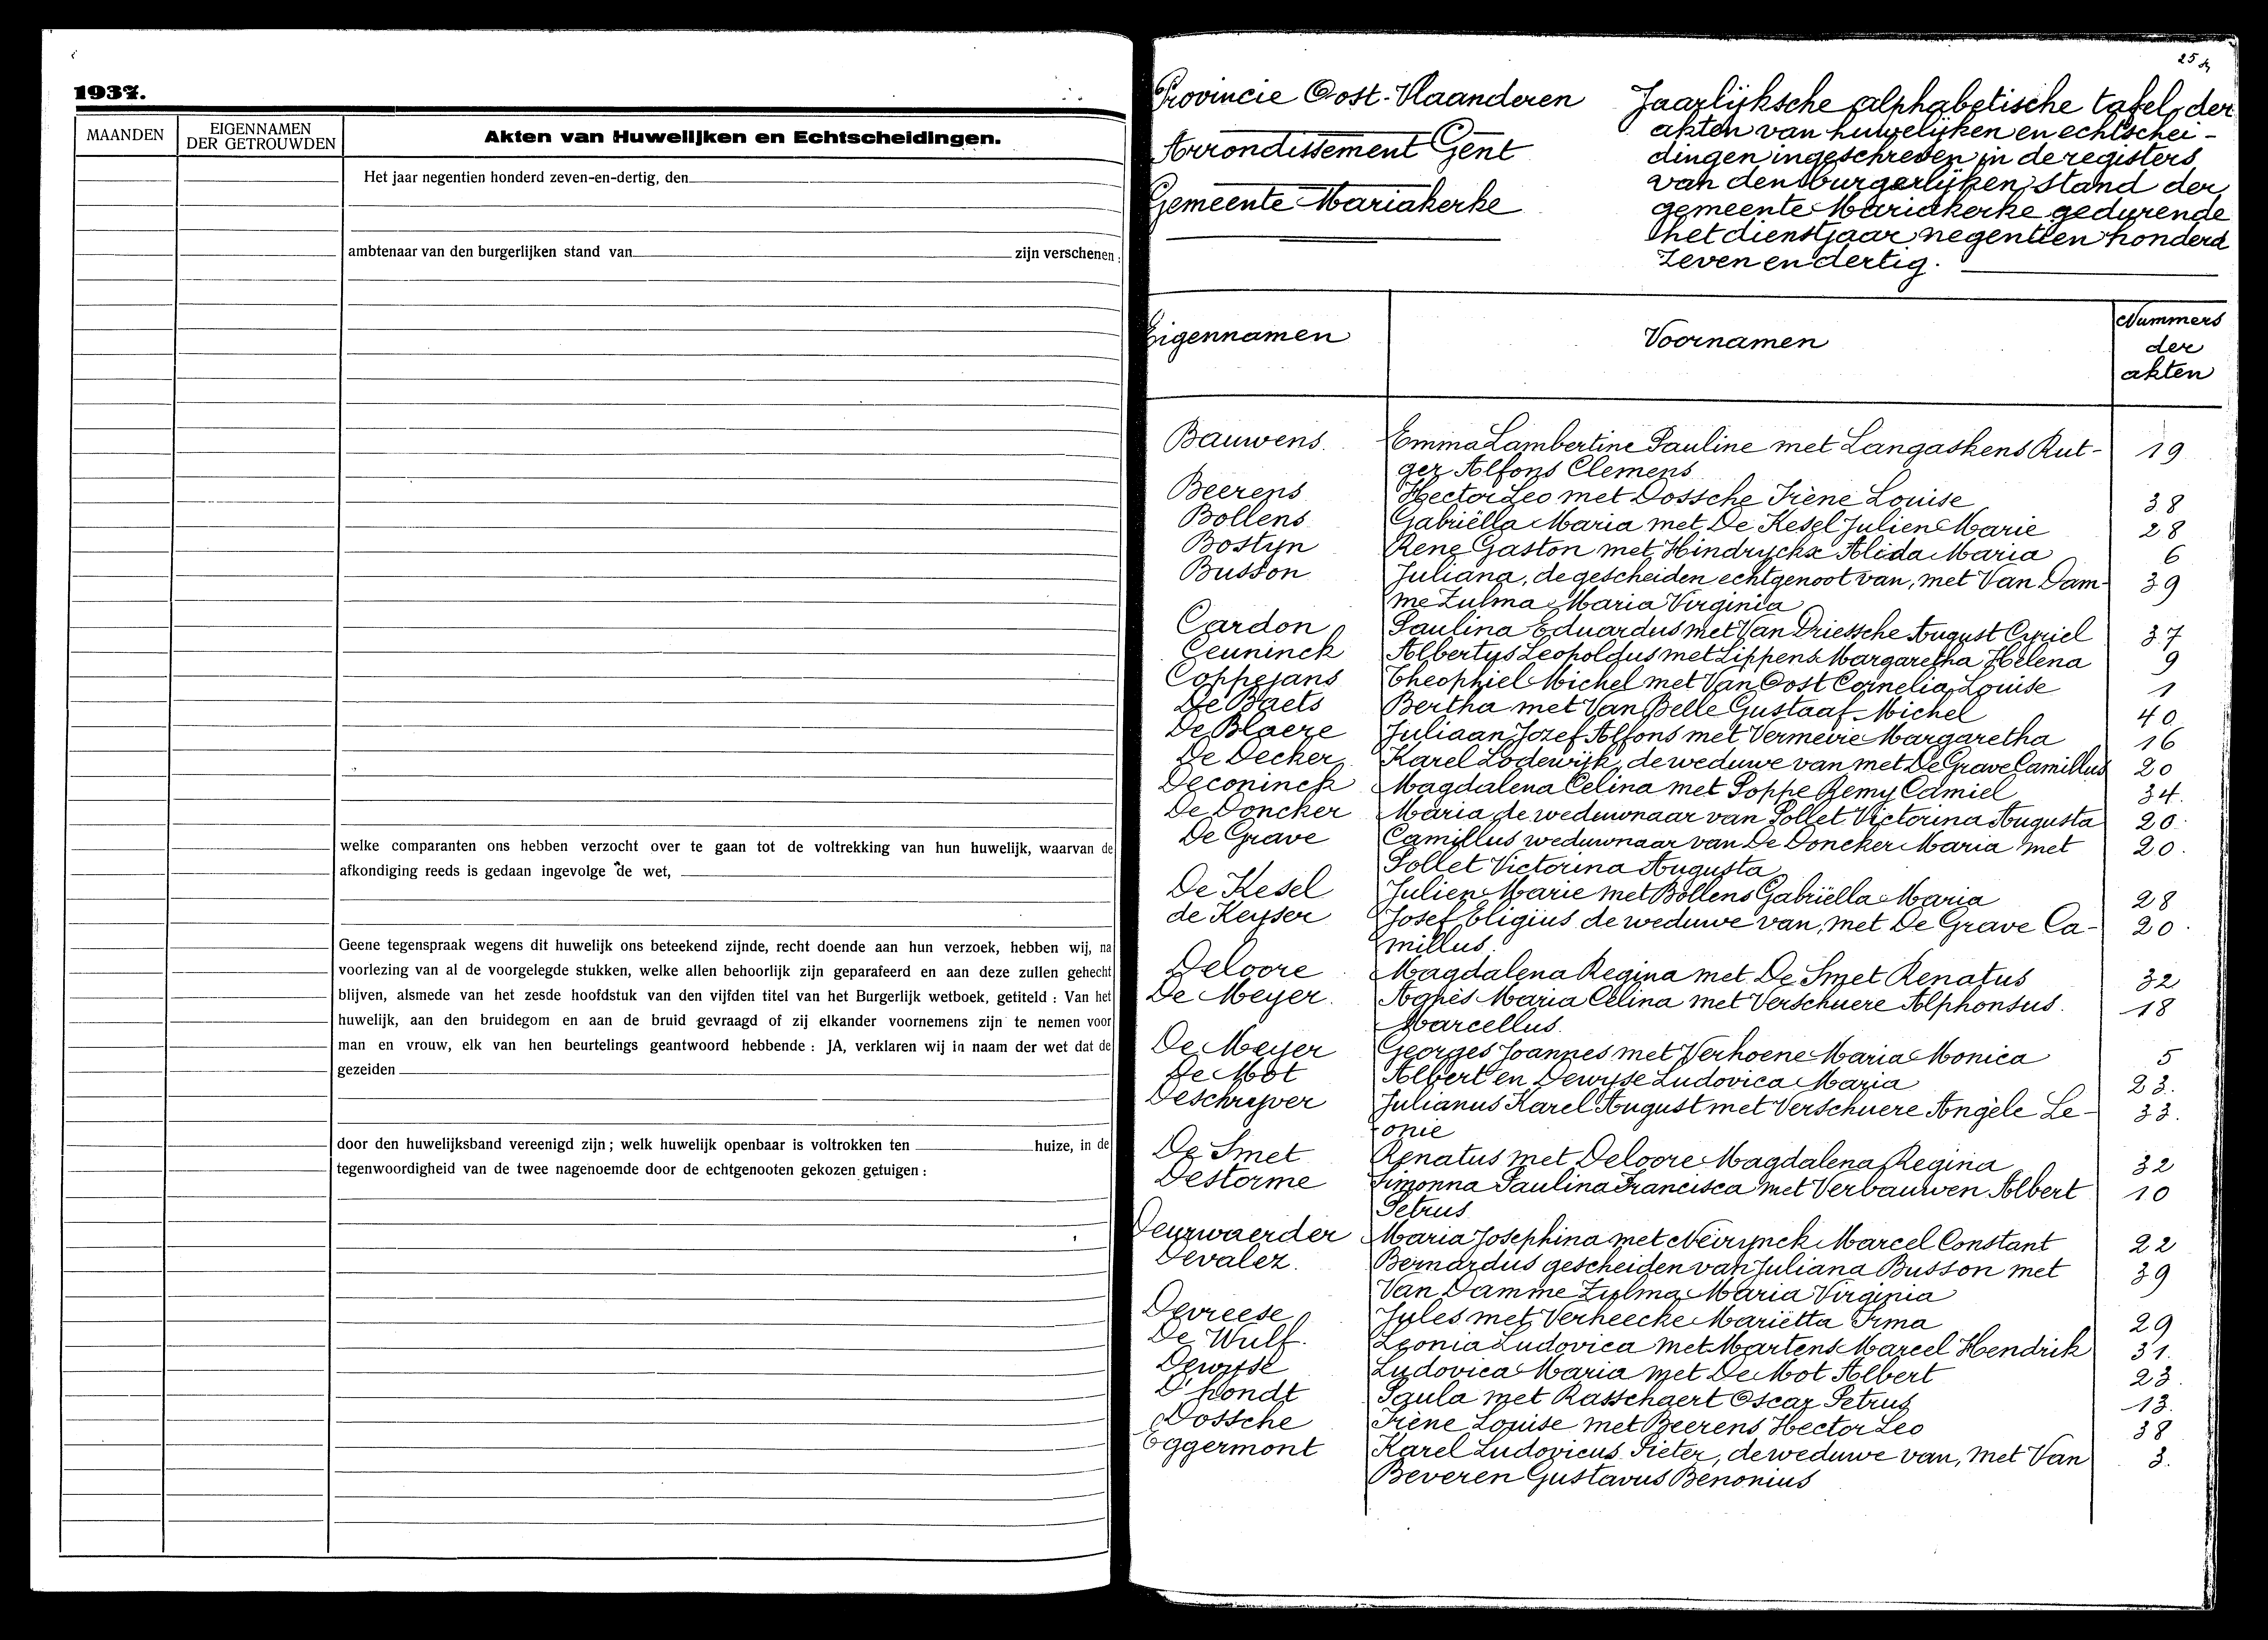 1937.
MAANDEN
EIGENNAMEN
DER GETROUWDEN
Akten van Huwelijken en Echtscheidingen.
Het jaar negentien honderd zeven-en-dertig, den
ambtenaar van den burgerlijken stand van zijn verschenen :
welke comparanten ons hebben verzocht over te gaan tot de voltrekking van hun huwelijk, waarvan de
afkondiging reeds is gedaan ingevolge de wet,
Geene tegenspraak wegens dit huwelijk ons beteekend zijnde, recht doende aan hun verzoek, hebben wij, na
voorlezing van al de voorgelegde stukken, welke allen behoorlijk zijn geparafeerd en aan deze zullen gehecht
blijven, alsmede van het zesde hoofdstuk van den vijfden titel van het Burgerlijk wetboek, getiteld : Van het
huwelijk, aan den bruidegom en aan de bruid gevraagd of zij elkander voornemens zijn te nemen voor
man en vrouw, elk van hen beurtelings geantwoord hebbende : JA, verklaren wij in naam der wet dat de
gezeiden
door den huwelijksband vereenigd zijn ; welk huwelijk openbaar is voltrokken ten huize, in de
tegenwoordigheid van de twee nagenoemde door de echtgenooten gekozen getuigen :
25
Provincie Oost-Vlaanderen
Arrondissement Gent
Gemeente Mariakerke
Jaarlijksche alphabetische tafel der
akten van huwelijken en echtschei-
dingen ingeschreven in de registers
van den burgerlijken stand der
gemeente Mariakerke gedurende
het dienstjaar negentien honderd
zeven en dertig.
Eigennamen Voornamen Nummers
der
akten
Bauwens. Emma Lambertine Pauline met Langaskens Rut- 19
ger Alfons Clemens
Beerens Hector Leo met Dossche Irène Louise 38
Bollens Gabriëlla Maria met De Kesel Julien Marie 28
Bostyn Rene Gaston met Hindryckx Alida Maria 6
Busson Juliana, de gescheiden echtgenoot van, met Van Dam- 39
me Zulma Maria Virginia
Cardon Paulina Eduardus met Van Driessche August Cyriel 37
Ceuninck Albertus Leopoldus met Lippens Margaretha Helena 9
Coppejans Theophiel Michel met Van Oost Cornelia Louise 1
De Baets Bertha met Van Belle Gustaaf Michel 40
De Blaere Juliaan Jozef Alfons met Vermeire Margaretha 16
De Decker Karel Lodewijk, de weduwe van met De Grave Camillus 20
Deconinck Magdalena Celina met Poppe Remy Camiel 34.
De Doncker Maria de weduwnaar van Pollet Victorina Augusta 20.
De Grave Camillus weduwnaar van De Doncker Maria met 20.
Pollet Victorina Augusta
De Kesel Julien Marie met Bollens Gabriëlla Maria 28
de Keyser Josef Eligius de weduwe van, met De Grave Ca- 20.
millus.
Deloore Magdalena Regina met De Smet Renatus 32
De Meyer. Agnès Maria Celina met Verschuere Alphonsus. 18
Marcellus.
De Meyer Georges Joannes met Verhoene Maria Monica 5
De Mot Albert en Dewyse Ludovica Maria 23.
Deschryver Julianus Karel August met Verschuere Angèle Le- 33.
onie
De Smet Renatus met Deloore Magdalena Regina 32
Destorme Simonna Paulina Francisca met Verbauwen Albert 10
Petrus
Deurwaerder Maria Josephina met Neirynck Marcel Constant 22
Devalez. Bernardus gescheiden van Juliana Busson met 39
Van Damme Zulma Maria Virginia
Devreese Jules met Verheecke Mariëtta Irma 29
De Wulf. Leonia Ludovica met Martens Marcel Hendrik 31.
Dewyse Ludovica Maria met De Mot Albert 23.
D'hondt Paula met Rasschaert Oscar Petrus 13.
Dossche Irène Louise met Beerens Hector Leo 38
Eggermont Karel Ludovicus Pieter, de weduwe van, met Van 3.
Beveren Gustavus Benonius